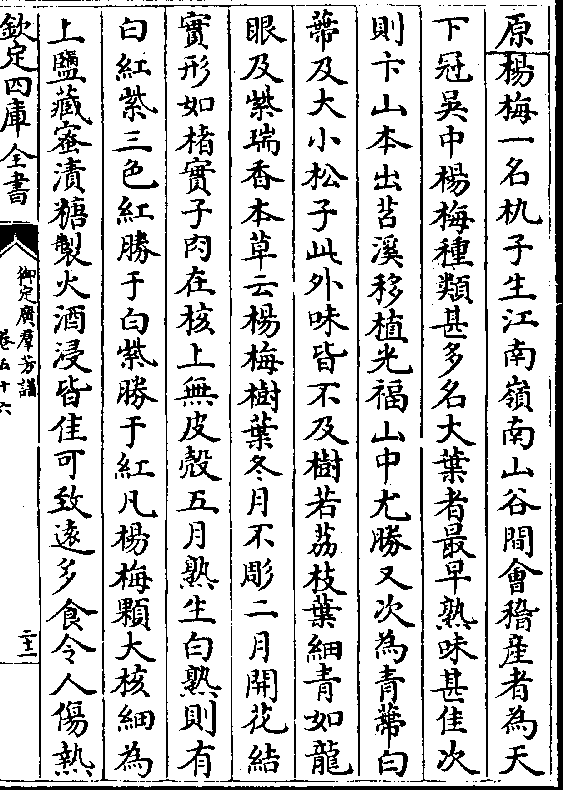 原楊梅一名朹子生江南嶺南山谷間會稽産者為天
下冠吳中楊梅種類甚多名大葉者最早熟味甚佳次
則卞山本出苕溪移植光福山中尤勝又次為青蔕白
蔕及大小松子此外味皆不及樹若荔枝葉細青如龍
眼及紫瑞香本草云楊梅樹葉冬月不彫二月開花結
實形如楮實子肉在核上無皮殻五月熟生白熟則有
白紅紫三色紅勝于白紫勝于紅凡楊梅顆大核細為
上鹽藏蜜漬糖製火酒浸皆佳可致遠多食令人傷熱
欽定四庫全書
御定廣羣芳譜
卷五十六
二十二